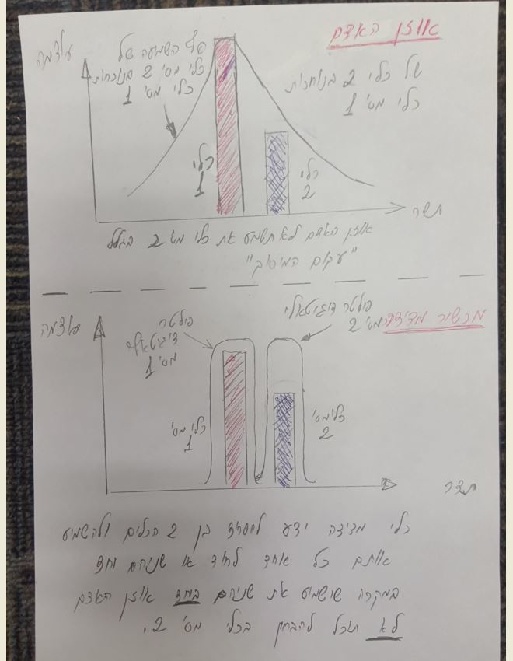 אוזן האדם
עוצמה
סף השמיעה של
כלי מס' 2 בנוכחות
כלי מס' 1
של כלי 2 בנוכחות
כלי מס' 1
כלי
1
כלי
2
תדר
אוזן האדם לא תשמע את כלי מס' 2 בגלל
"עקום המיסוך"
מכשיר מדידה
עוצמה
פילטר
דיגיטאלי
מס' 1
פילטר דיגיטאלי
מס' 2
כלי מס'
1
כלי מס'
2
תדר
כלי מדידה ידע להפריד בין 2 הכלים ולהשמיע
אותם כל אחד לחוד או שניהם יחד
במקרה שישמיע את שניהם ביחד אוזן האדם
לא תוכל להבחין בכלי מס' 2.